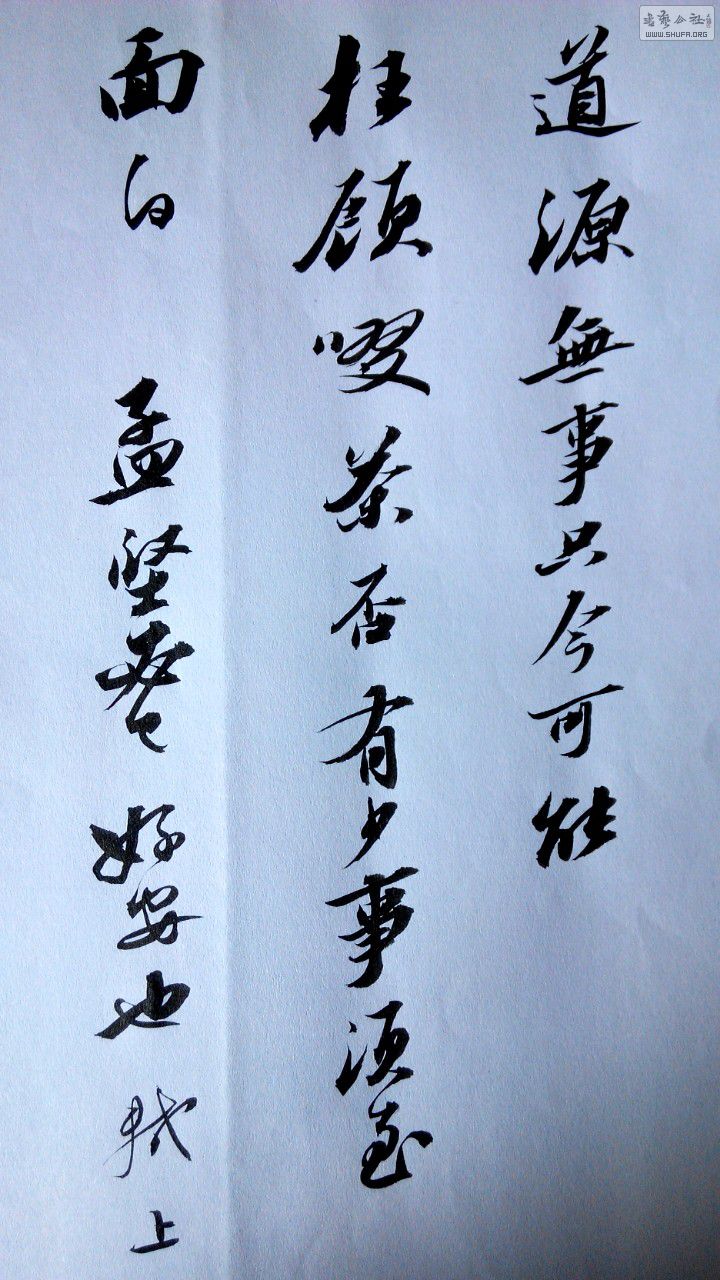 道源無事只今可能
枉顧啜茶否有少事須至
面白 孟堅必已好安也 軾上
書藝公社
WWW.SHUFA.ORG